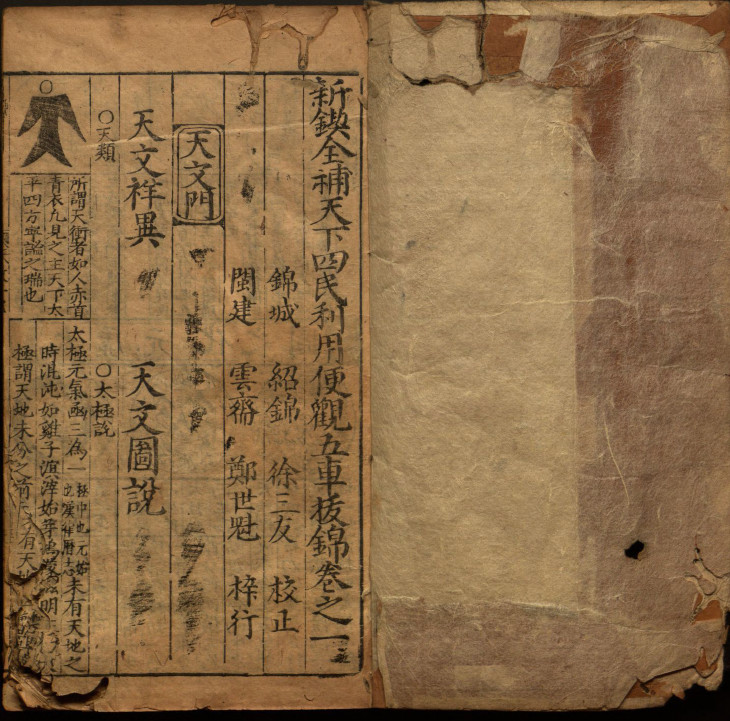 新鍥全補天下四民利用便觀五車拔錦卷之一
錦城 紹錦 徐三友 校正
閩建 雲齋 鄭世魁 梓行
天文門
天文祥異
天文圖說
○天類
所謂天衝者如人赤首
青衣九見之主天下太
平四方寧謐之瑞也
○太極說
太極元氣函三為一 極中也元始 未有天地之
時混沌如雞子溟涬始
極謂天地未分之前